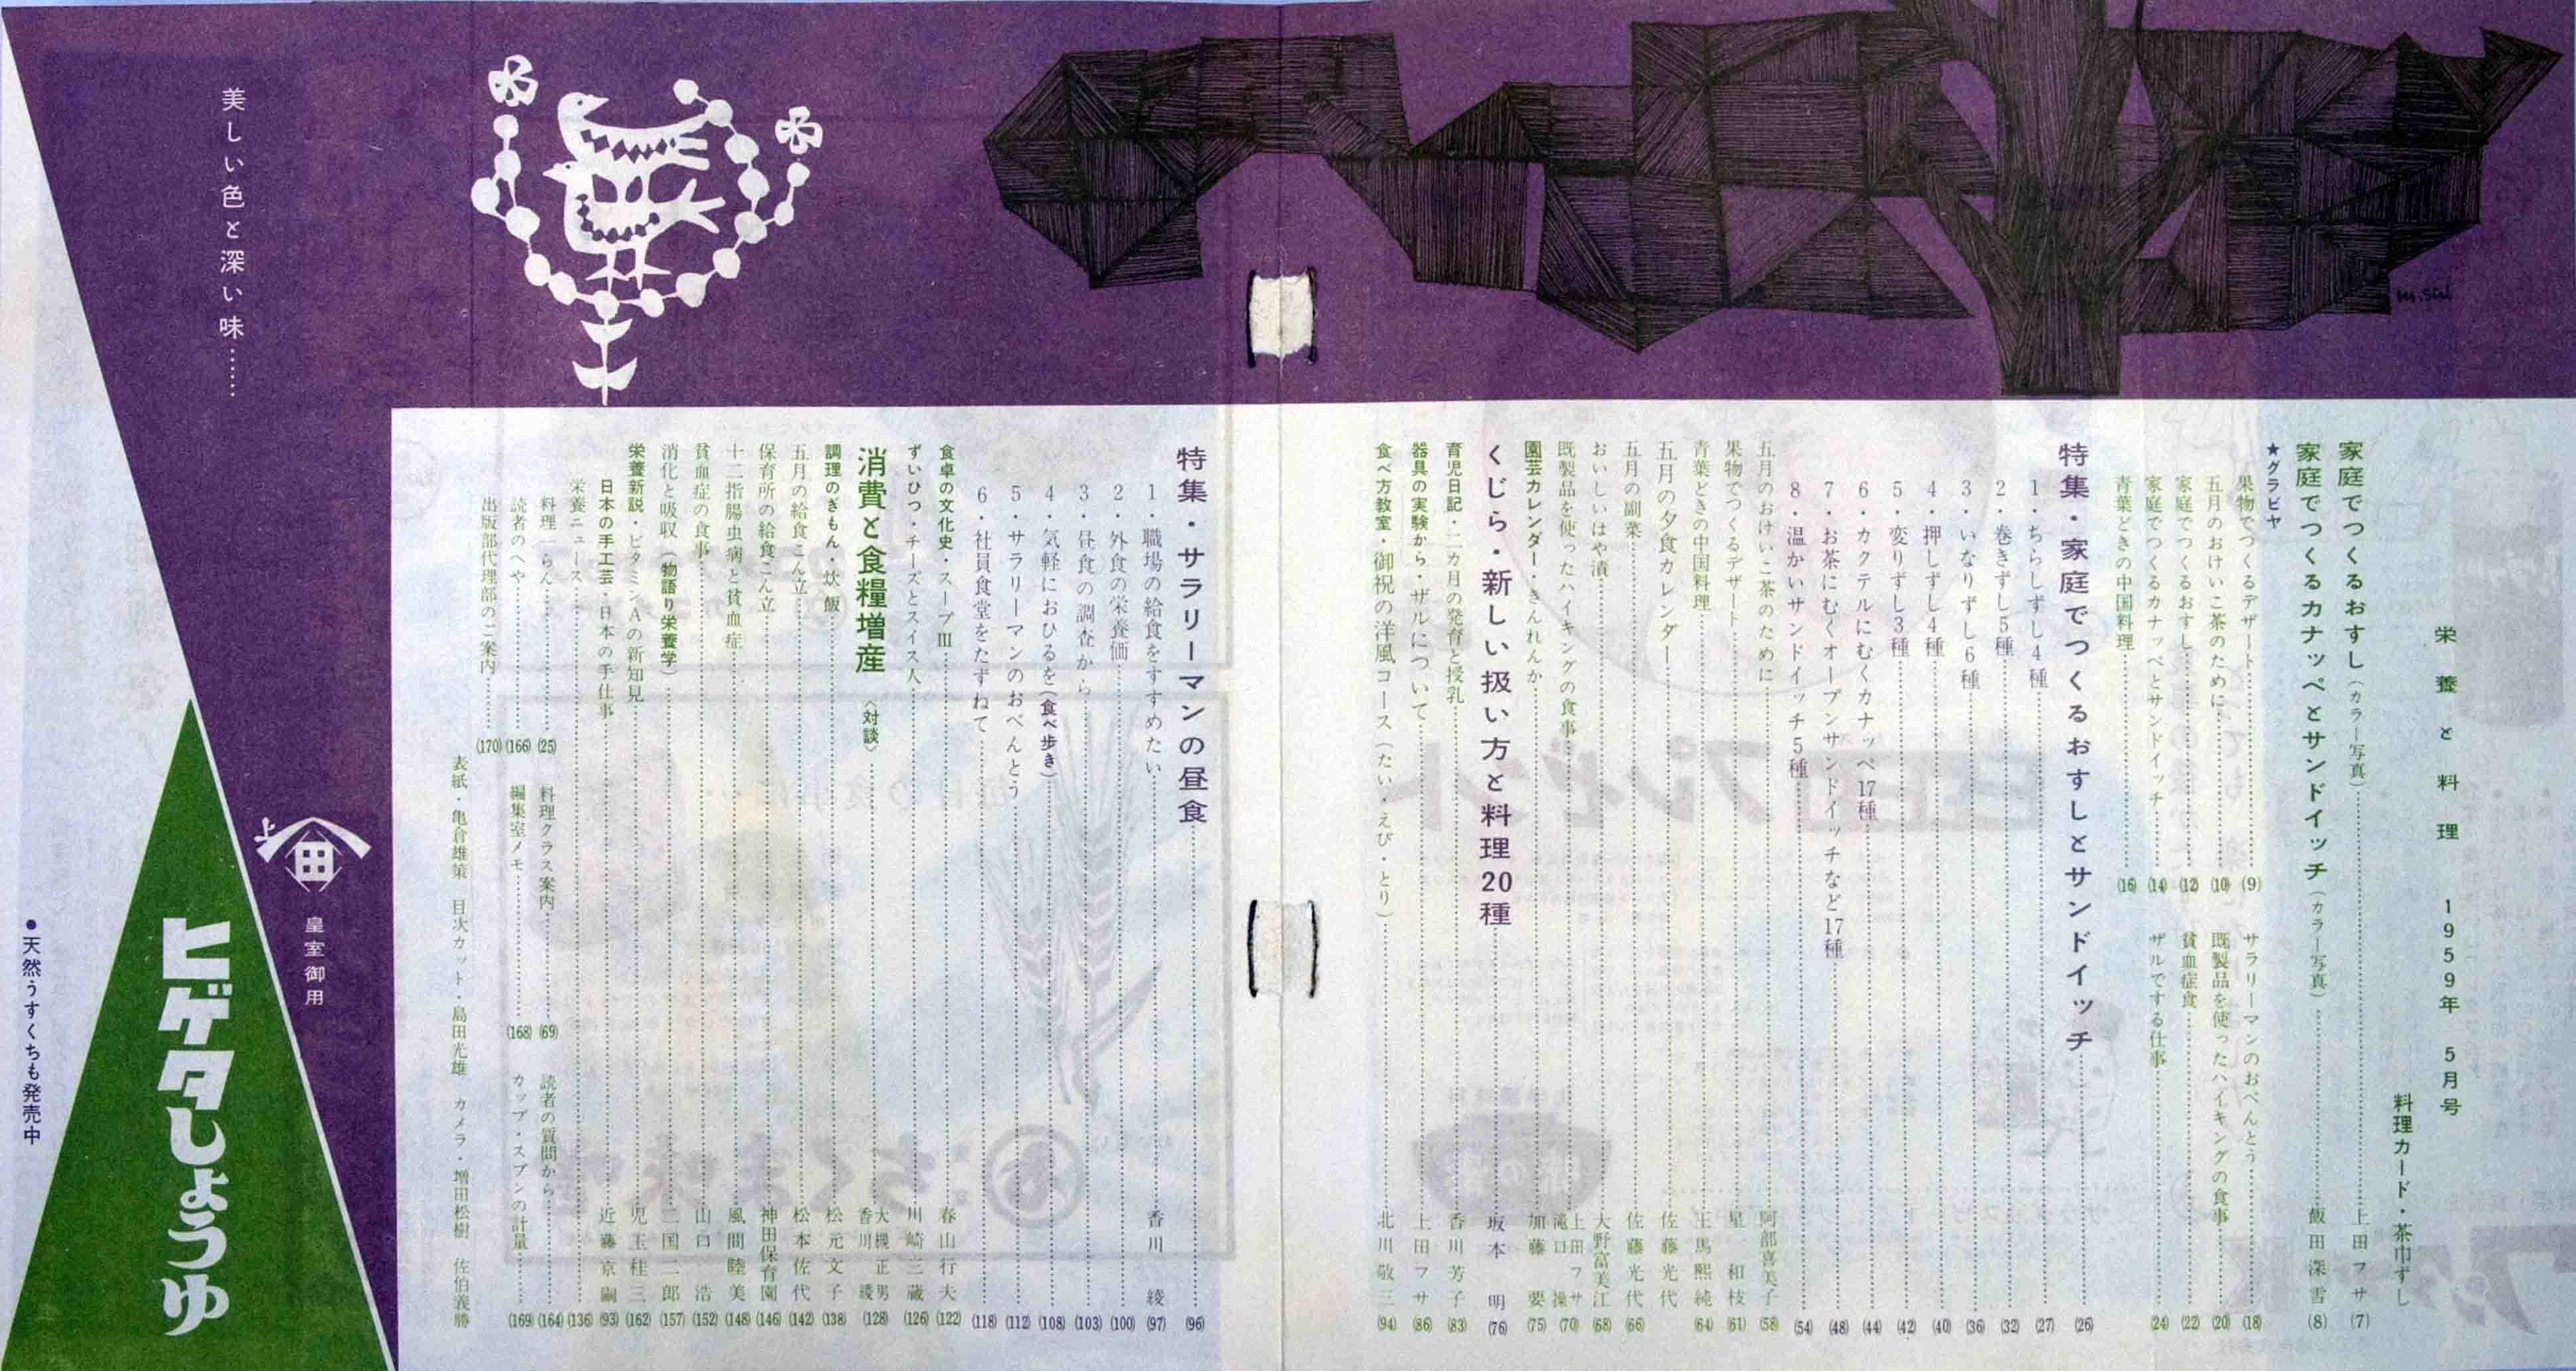 栄養と料理 1959年 5月号
料理カード・茶巾ずし
家庭でつくるおすし(カラー写真) 上田フサ (7)
家庭でつくるカナッペとサンドイッチ(カラー写真) 飯田深雪 (8)
★グラビヤ
果物でつくるデザート (9)
サラリーマンのおべんとう (18)
五月のおけいこ茶のために (10)
既製品を使ったハイキングの食事 (20)
家庭でつくるおすし (12)
貧血症食 (22)
家庭でつくるカナッペとサンドイッチ (14)
ザルでする仕事 (24)
青葉どきの中国料理 (16)
特集・家庭でつくるおすしとサンドイッチ (26)
1・ちらしずし4種 (27)
2・巻きずし5種 (32)
3・いなりずし6種 (36)
4・押しずし4種 (40)
5・変りずし3種 (42)
6・カクテルにむくカナッペ17種 (44)
7・お茶にむくオープンサンドイッチなど17種 (48)
8・温かいサンドイッチ5種 (54)
五月のおけいこ茶のために 阿部喜美子 (58)
果物でつくるデザート 星和枝 (61)
青葉どきの中国料理 王馬熙純 (64)
五月の夕食カレンダー 佐藤光代
五月の副菜 佐藤光代 (66)
おいしいはや漬 大野富美江 (68)
既製品を使ったハイキングの食事 上田フサ 滝口操 (70)
園芸カレンダー・きんれんか 加藤要 (75)
くじら・新しい扱い方と料理20種 坂本明 (76)
育児日記・二カ月の発育と授乳 香川芳子 (83)
器具の実験から・ザルについて 上田フサ (86)
食べ方教室・御祝の洋風コース(たい・えび・とり) 北川敬三 (94)
特集・サラリーマンの昼食 (96)
1・職場の給食をすすめたい 香川綾 (97)
2・外食の栄養価 (100)
3・昼食の調査から (103)
4・気軽におひるを(食べ歩き) (108)
5・サラリーマンのおべんとう (112)
6・社員食堂をたずねて (118)
食卓の文化史・スープⅢ 春山行夫 (122)
ずいひつ・チーズとスイス人 川崎三蔵 (126)
消費と食糧増産〈対談〉 大槻正男 香川綾 (128)
調理のぎもん・炊飯 松元文子 (138)
五月の給食こん立 松本佐代 (142)
保育所の給食こん立 神田保育園 (146)
十二指腸虫病と貧血症 風間睦美 (148)
貧血症の食事 山口浩 (152)
消化と吸収(物語り栄養学) 二国二郎 (157)
栄養新説・ビタミンAの新知見 児玉桂三 (162)
日本の手工芸・日本の手仕事 近藤京嗣 (93)
栄養ニュース (136)
料理一らん (25)
料理クラス案内 (69)
読者の質問から (164)
読者のへや (166)
編集室メモ (168)
カップ・スプンの計量 (169)
出版部代理部のご案内 (170)
表紙・亀倉雄策 目次カット・島田光雄 カメラ・増田松樹 佐伯義勝
m.shi
美しい色と深い味……
上 田
皇室御用
ヒゲタしょうゆ
●天然うすくちも発売中